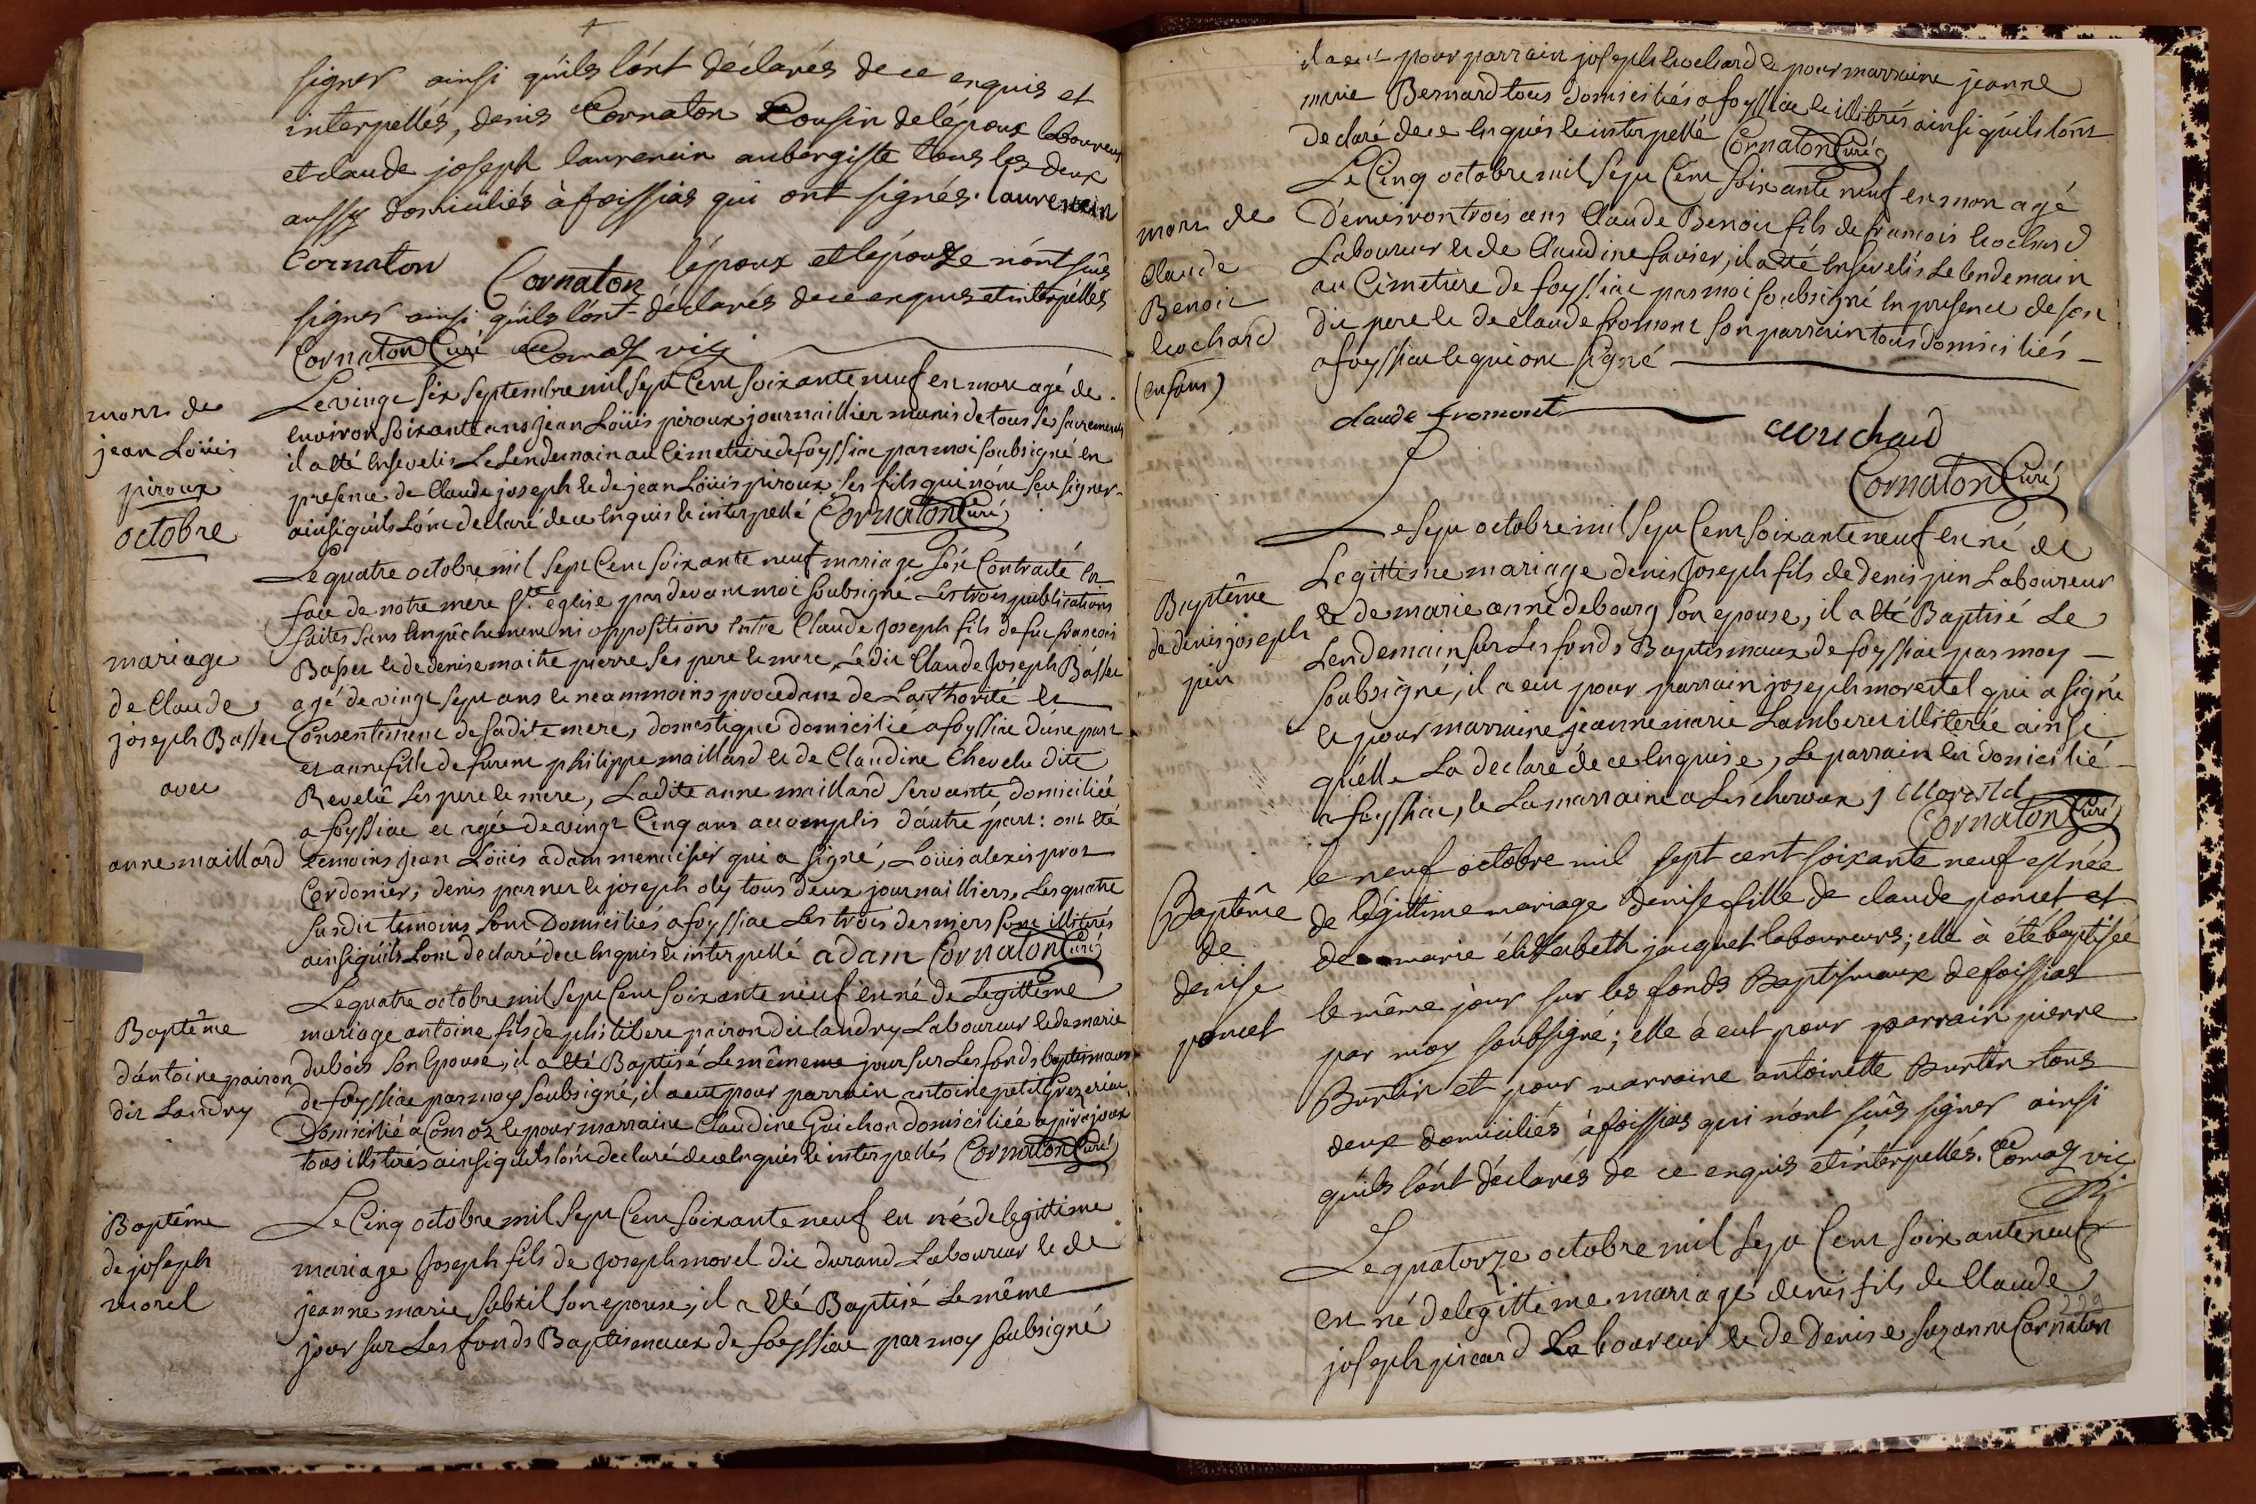 signer ainsi qu'ils l'ont déclarés de ce enquis et
interpellés, denis Cornaton Cousin de lépoux laboureur
et claude joseph laurencin aubergiste tous les deux
aussy domiciliés à foissias qui ont signés. laurencin
Cornaton Cornaton lépoux et lépouze n'ont sûs
signer ainsi qu'ils l'ont déclarés de ce enquis et interpellés
Cornaton Curé vic
mort de
jean Loüis
piroux
octobre
Le vingt six septembre mil sept Cent soixante neuf est mort agé de
environ soixante ans jean Loüis piroux journaillier munis de tous ses sacrements
il a été Ensevelis Le Lendemain au Cimetiere de foyssiac par moi soubsigné en
presence de Claude joseph & de jean Loüis piroux ses fils qui n'ont seu signer
ainsi qu'ils L'ont declaré de ce Enquis & interpellé Cornaton Curé
mariage
de Claude
joseph Basset
avec
anne maillard
Le quatre octobre mil sept Cent soixante neuf mariage s'est Contracté En
face de notre mere Ste église pardevant moi soubsigné Les trois publications
faites sans Empêchement ni opposition Entre Claude Joseph fils de fut francois
Basset & de denise maitre pierre ses pere & mere, Ledit Claude Joseph Basset
agé de vingt sept ans & neammoins procedant de L'authorité &
Consentement de sadite mere, domestique domicilié a foyssiac d'une part
et anne fille de furent philippe maillard & de Claudine Chevelu dite
Revelû ses pere & mere, Ladite anne maillard servante domiciliée
a foyssiac et agée de vingt Cinq ans accomplis d'autre part: ont été
temoins jean Loüis adam menuisier qui a signé, Loüis alexis prost
Cordonier, denis parnet & joseph oly tous deux journailliers. Les quatre
susdit temoins sont Domiciliés a foyssiac Les trois derniers sont illiterés
ainsi qu'ils L'ont declaré de ce Enquis & interpellé adam Cornaton Curé
Baptême
d'antoine pairon
dit Landry
Le quatre octobre mil sept Cent soixante neuf est né de Legittime
mariage antoine fils de philibert pairon dit landry Laboureur & de marie
dubois son Epouse, il a été Baptisé Le même jour sur Les fonds baptismaux
de foyssiac par moy soubsigné, il a eut pour parrain antoine petit
Domicilié a Comoz & pour marraine Claudine Guichon domiciliée a pirajoux
tous illiterés ainsi qu'ils L'ont declaré de ce Enquis & interpellés Cornaton Curé
Baptême
de joseph
morel
Le Cinq octobre mil sept Cent soixante neuf est né de legittime
mariage Joseph fils de Joseph morel dit durand Laboureur & de
jeanne marie subtil son epouse, il a été Baptisé Le même
jour sur Les fonds Baptismaux de foyssiac par moy soubsigné
il a eu pour parrain joseph & pour marraine jeanne
marie Bernard tous domiciliés a foyssiac & illitrés ainsi qu'ils l'ont
declaré de ce Enquis & interpellé Cornaton Curé
mort de
Claude
Benoit
(enfant)
Le Cinq octobre mil sept Cent soixante neuf est mort agé
d'environ trois ans Claude Benoit fils de francois
Laboureur & de Claudine favier, il a été Ensevelis Le lendemain
au Cimetiere de foyssiac par moi soubsigné En presence de son
dit pere & de claude fromont son parrain tous domiciliés
a foyssiac & qui ont signé
claude fromont
Cornaton Curé
Baptême
de denis joseph
pin
Le sept octobre mil sept Cent soixante neuf est né de
Legittime mariage denis Joseph fils de denis pin Laboureur
& de marie anne debourg son epouse, il a été Baptisé Le
Lendemain sur Les fonds Baptismaux de foyssiac par moy
soubsigné, il a eu pour parrain joseph morestel qui a signé
& pour marraine jeanne marie Lambert illiterée ainsi
qu'elle La declaré de ce Enquise, Le parrain Est domicilié
a foyssiac, & La marraine a Lescheroux j Morestel
Cornaton Curé
Baptême
de
denise
poncet
le neuf octobre mil sept cent soixante neuf est née
de légittime mariage denise fille de claude poncet et
de marie élizabeth jacquet laboureurs; elle à été baptisée
le même jour sur les fonds Baptismaux de foissias
par moy soubsigné; elle à eut pour parrain pierre
Burtin et pour marraine antoinette Burtin tous
deux domiciliés à foissias qui n'ont sûs signer ainsi
qu'ils l'ont déclarés de ce enquis et interpellés. vic
Le quatorze octobre mil sept Cent soixante neuf
est né de legittime mariage denis fils de Claude
joseph picard Laboureur & de Denise suzanne Cornaton